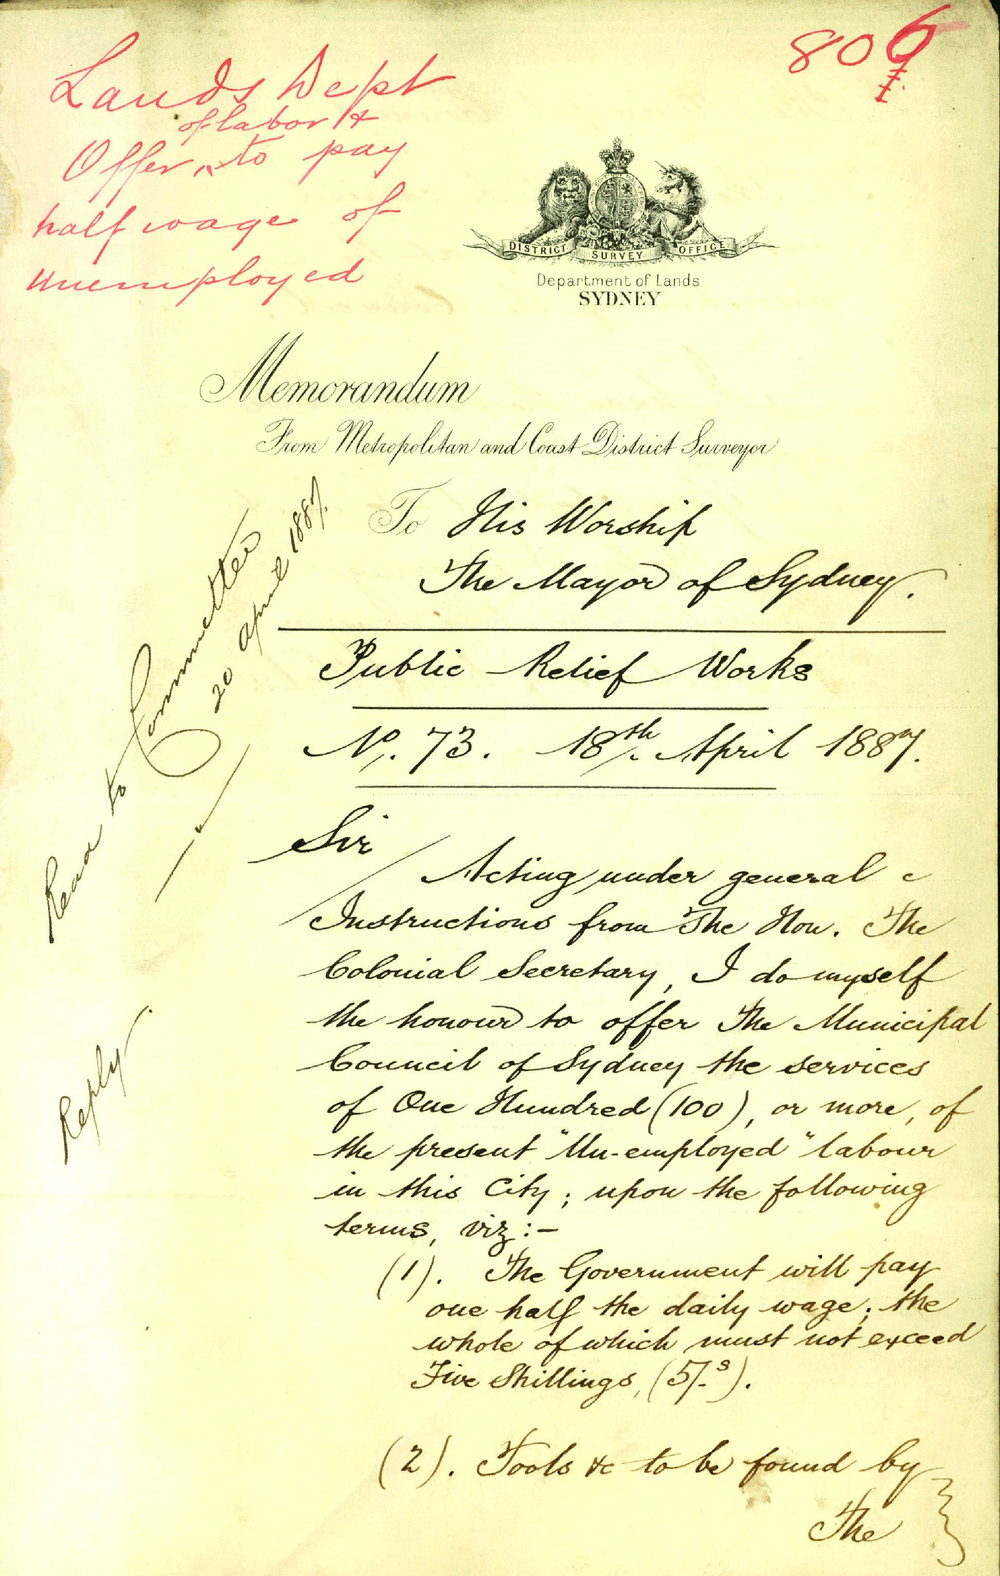 806
Lands Dept
of labor &
Offer ‸ to pay
half wage of
Unemployed
DISTRICT SURVEY OFFICE
Department of Lands
SYDNEY
Memorandum
From Metropolitan and Coast District Surveyor
To His Worship
The Mayor of Sydney.
Public Relief Works
No. 73. 18th. April 1887.
Read to Committee
20 April 1887.
Reply
Sir
Acting under general
Instructions from The Hon. The
Colonial Secretary, I do myself
the honour to offer the Municipal
Council of Sydney the services
of One Hundred (100), or more, of
the present "Un-employed" labour
in this City; upon the following
terms, viz:-
(1). The Government will pay
one half the daily wage; the
whole of which must not exceed
Five Shillings, (5/-s).
(2). Tools &c to be found by
the